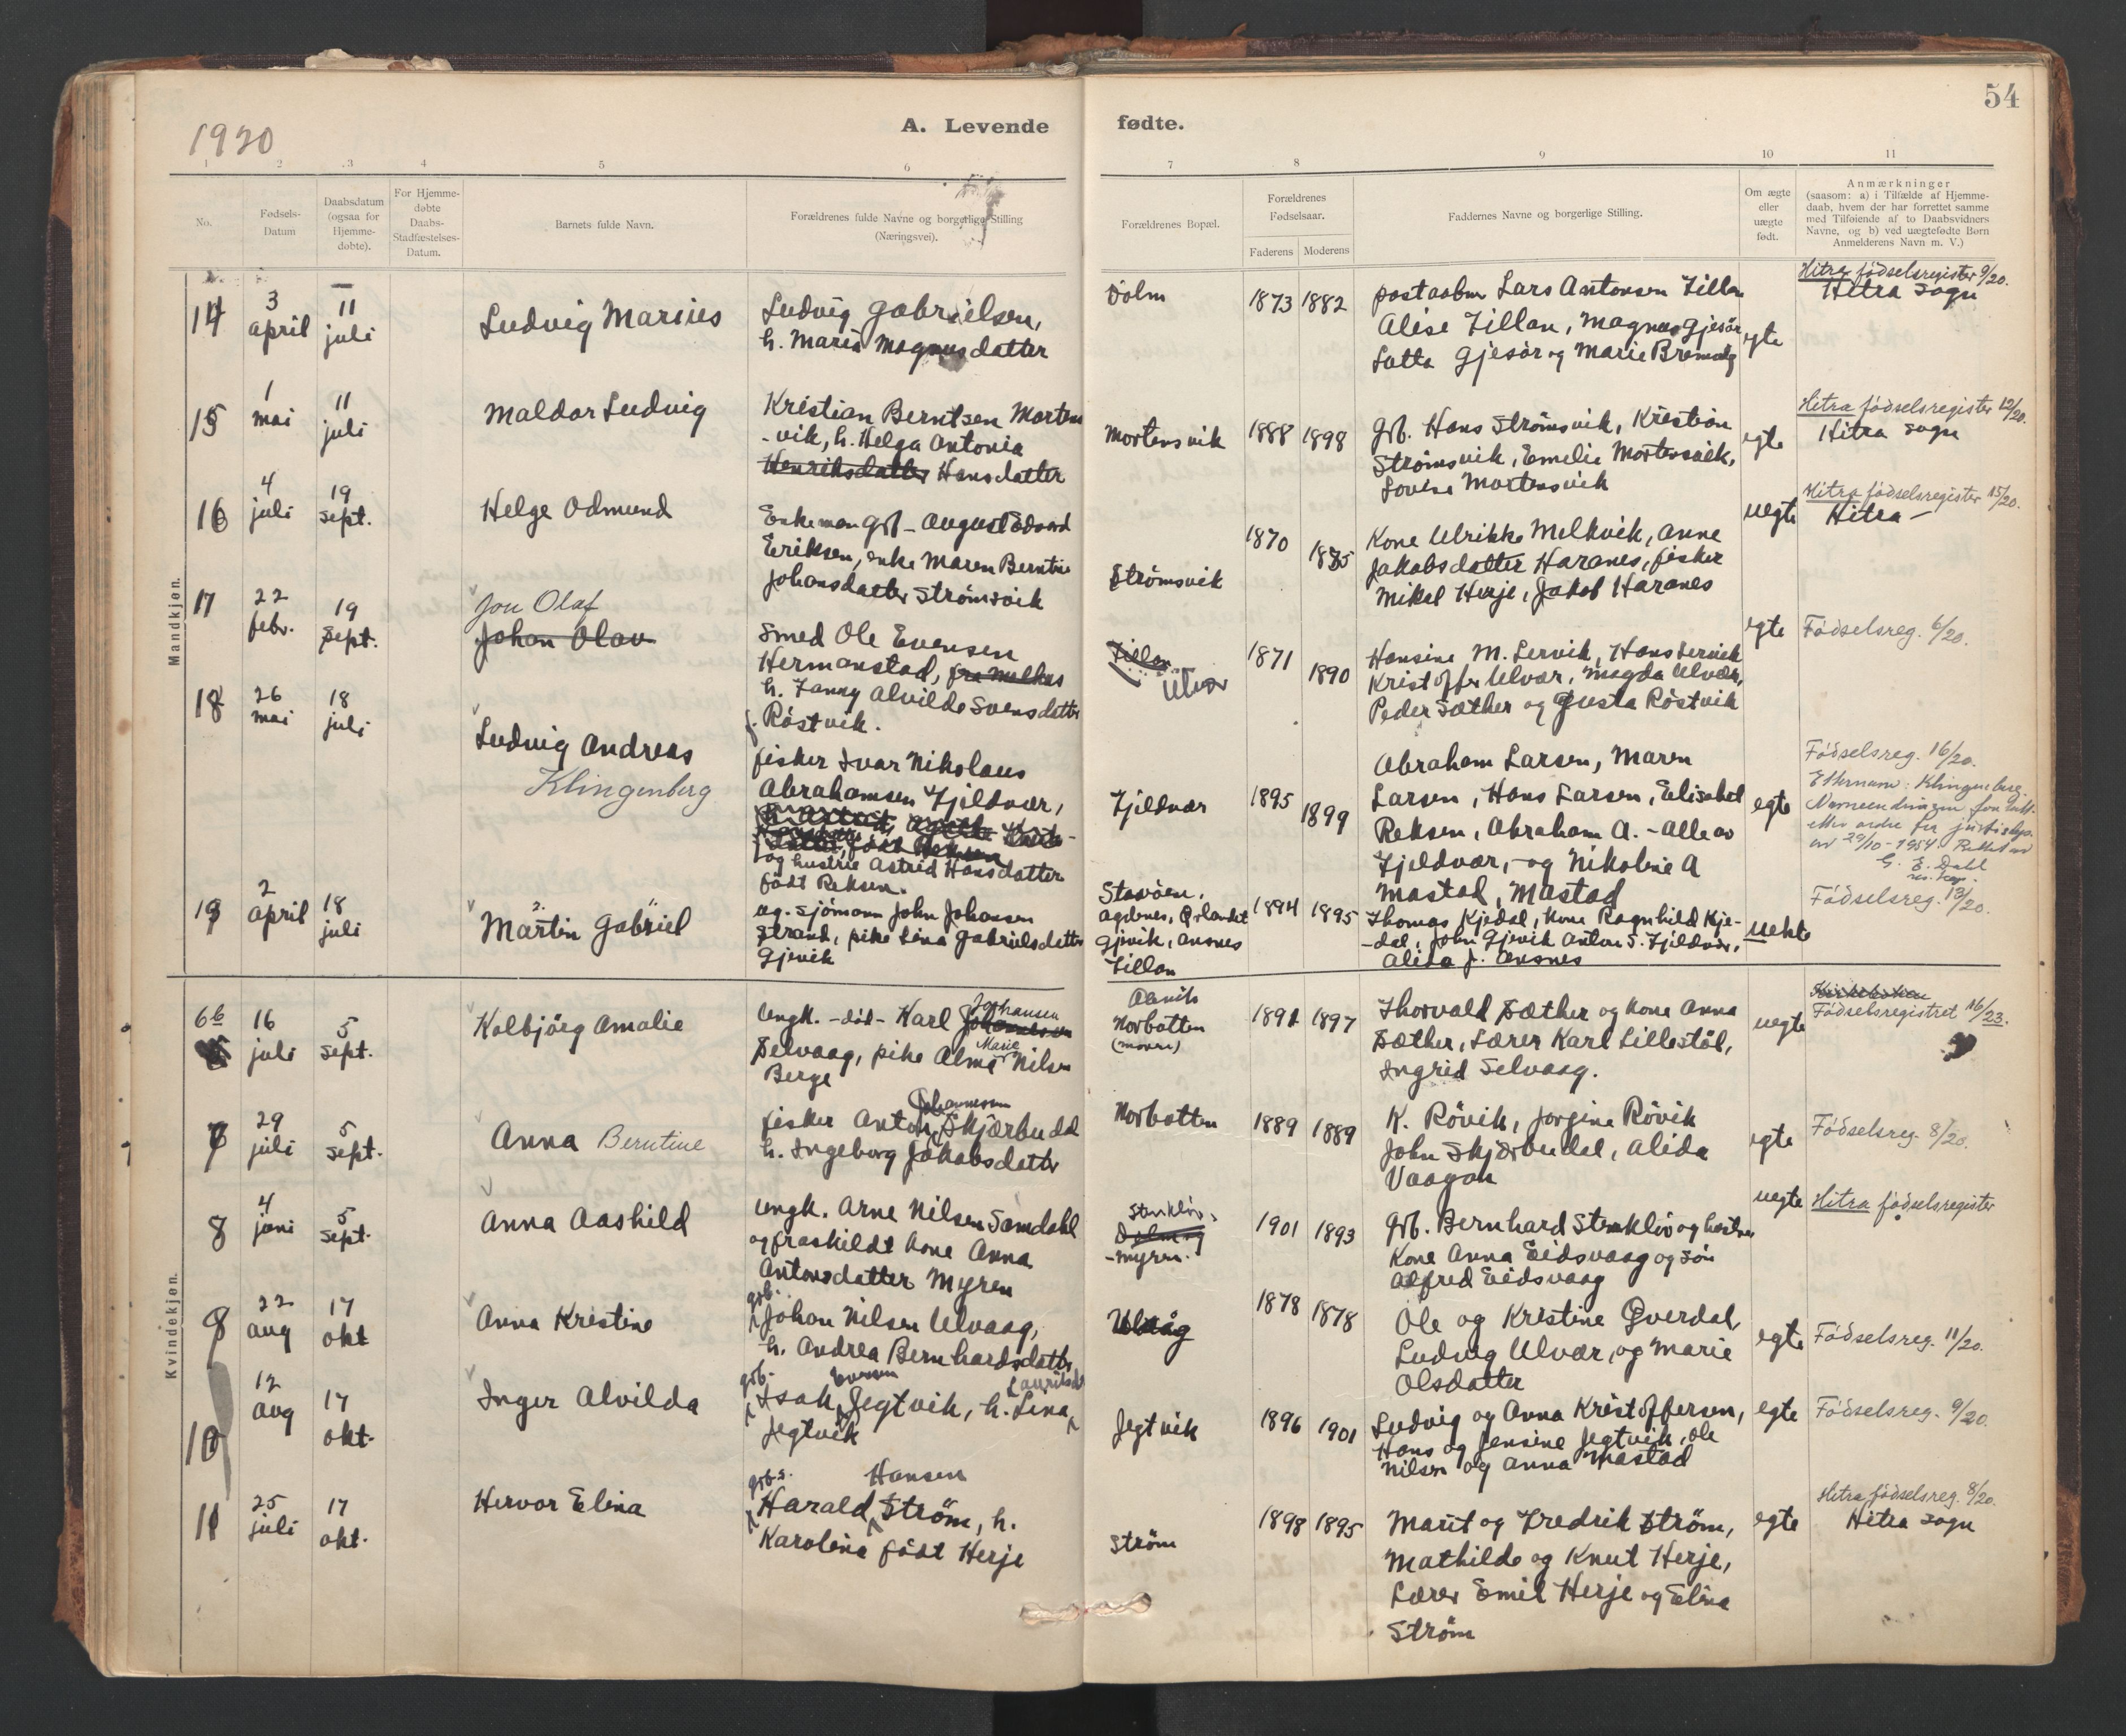 54
1920
A. Levende fødte.
1 2 3 4 5 6 7 8 9 10 11
No.
Fødsels-
Datum
Daabsdatum
(ogsaa for
Hjemme-
døbte).
For Hjemme-
døbte
Daabs-
Stadfæstelses-
Datum.
Barnets fulde Navn.
Forældrenes fulde Navne og borgerlige Stilling
(Næringsvei).
Forældrenes Bopæl.
Forældrenes
Fødselsaar.
Faderens Moderens
Faddernes Navne og borgerlige Stilling.
Om ægte
eller
uægte
født.
Anmærkninger
(saasom: a) i Tilfælde af Hjemme-
daab, hvem der har forrettet samme
med Tilføiende af to Daabsvidners
Navne, og b) ved uægtefødte Børn
Anmelderens Navn m. V.)
Mandkjøn.
14
3
april
11
juli
Ludvig Marius
Ludvig Gabrielsen,
h. Maria Magnusdatter
Dolm
1873 1882
postaabn Lars Antonsen Fillan
Alise Fillan, Magnus Gjesør
Lotta Gjesør og Marie
egte
Hitra fødselsregister 9/20.
Hitra sogn
15
1
mai
11
juli
Maldor Ludvig
Kristian Berntsen Mortens
-vik, h. Helga Antonia
Henriksdatter Hansdatter
Mortensvik
1888 1898
grb. Hans Strømsvik, Kristian
Strømsvik, Emelie Mortensvik,
Lovise Mortensvik
egte
Hitra fødselsregister 12/20.
Hitra sogn
16
4
juli
19
sept.
Helge Odmund
Enkeman grb - August Edvard
Eriksen, enke Maren Berntine
Johansdatter Strømsvik
Strømsvik
1870 1875
Kone Ulrikke Melkvik, Anne
Jakobsdatter Haranes, fisker
Mikal Herje, Jakob Haranes
uegte
Hitra fødselsregister 15/20.
Hitra -
17
22
febr.
19
sept.
Jon Olaf
Johan Olav
Smed Ole Evensen
Hermanstad, fra Melhus
h. Fanny Alvilde Svensdatter
f. Røstvik.
Fillan
Ulvær
1871 1890
Hansine M. Lervik, Hans Lervik
Kristoffer Ulvær, Magda Ulvær,
Peder Sæther og Gusta Røstvik
egte
Fødselsreg. 6/20.
18
26
mai
18
juli
Ludvig Andreas
Klingenberg
fisker Ivar Nikolaus
Abrahamsen Fjeldvær,
og hustru Astrid Hansdatter
født Reksen.
Fjeldvær
1895 1899
Abraham Larsen, Maren
Larsen, Hans Larsen, Elisabet
Reksen, Abraham A. - Alle av
Fjeldvær, - og Nikoline A
Mastad, Mastad
egte
Fødselsreg. 16/20.
Etternavn: Klingenberg.
Navneendringen
etter ordre fra justisdep.
av 29/10-1954.
G. E. Dahl
19
2
april
18
juli
Martin Gabriel
ug. Sjømann John Johansen
Strand, pike Lina Gabrielsdatter
Gjevik
Agdenes, Ørlandet
Gjevik, Ansnes
Fillan
1894 1895
Thomas Kjedal, kone Ragnhild Kje-
-dal, John Gjevik Anton S. Fjeldvær,
Alida J. Ansnes
uekte
Fødselsreg. 13/20.
Kvindekjøn.
6b
16
juli
5
sept.
Kolbjørg Amalie
Ungk. - død - Karl Johannesen Johansen
Selvaag, pike Alma Marie Nilsen
Berge
Norbotten
1891 1897
Thorvald Sæther og kone Anna
Sæther, Lærer Karl Lillestøl,
Ingrid Selvaag.
uegte
Kirkeboken
Fødselsregistret 16/23.
7
29
juli
5
sept.
Anna Berntine
fisker Anton Johannesen Skjærbudal
h. Ingeborg Jakobsdatter
Norbotten
1889 1889
K. Røvik, Jorgine Røvik
John Skjærbudal, Alida
Vaagan
egte
Fødselsreg. 8/20.
8
4
juni
5
sept.
Anna Aashild
Ungk. Arne Nilsen Samdahl
og fraskildt kone Anna
Antonsdatter Myren
Stenkløv,
-myren.
1901 1893
grb. Bernhard Stenkløv og hustru
Kone Anna Eidsvaag og søn
Alfred Eidsvaag
uegte
Hitra fødselsregister
9
22
aug
17
okt
Anna Kristine
grb.
Johan Nilsen Ulvaag,
h. Andrea Bernhardsdatter
Ulvåg
1878 1878
Ole og Kristine Øverdal,
Ludvig Ulvær, og Marie
Olsdatter
egte
Fødselsreg. 11/20.
10
12
aug
17
okt.
Inger Alvilda
grb.
Isak Evensen Jegtvik, h. Lina
Jegtvik
Jegtvik
1896 1901
Ludvig og Anna Kristoffersen,
Hans og Jensine Jegtvik, Ole
Nilsen og Anna Mastad
egte
Fødselsreg. 9/20.
11
25
juli
17
okt.
Hervor Elina
grb.s. Hansen
Harald Strøm, h.
Karolina født Herje
Strøm
1898 1895
Marit og Fredrik Strøm,
Mathilde og Knut Herje,
Lærer Emil Herje og Elina
Strøm
egte
Hitra fødselsreg. 8/20.
Hitra sogn